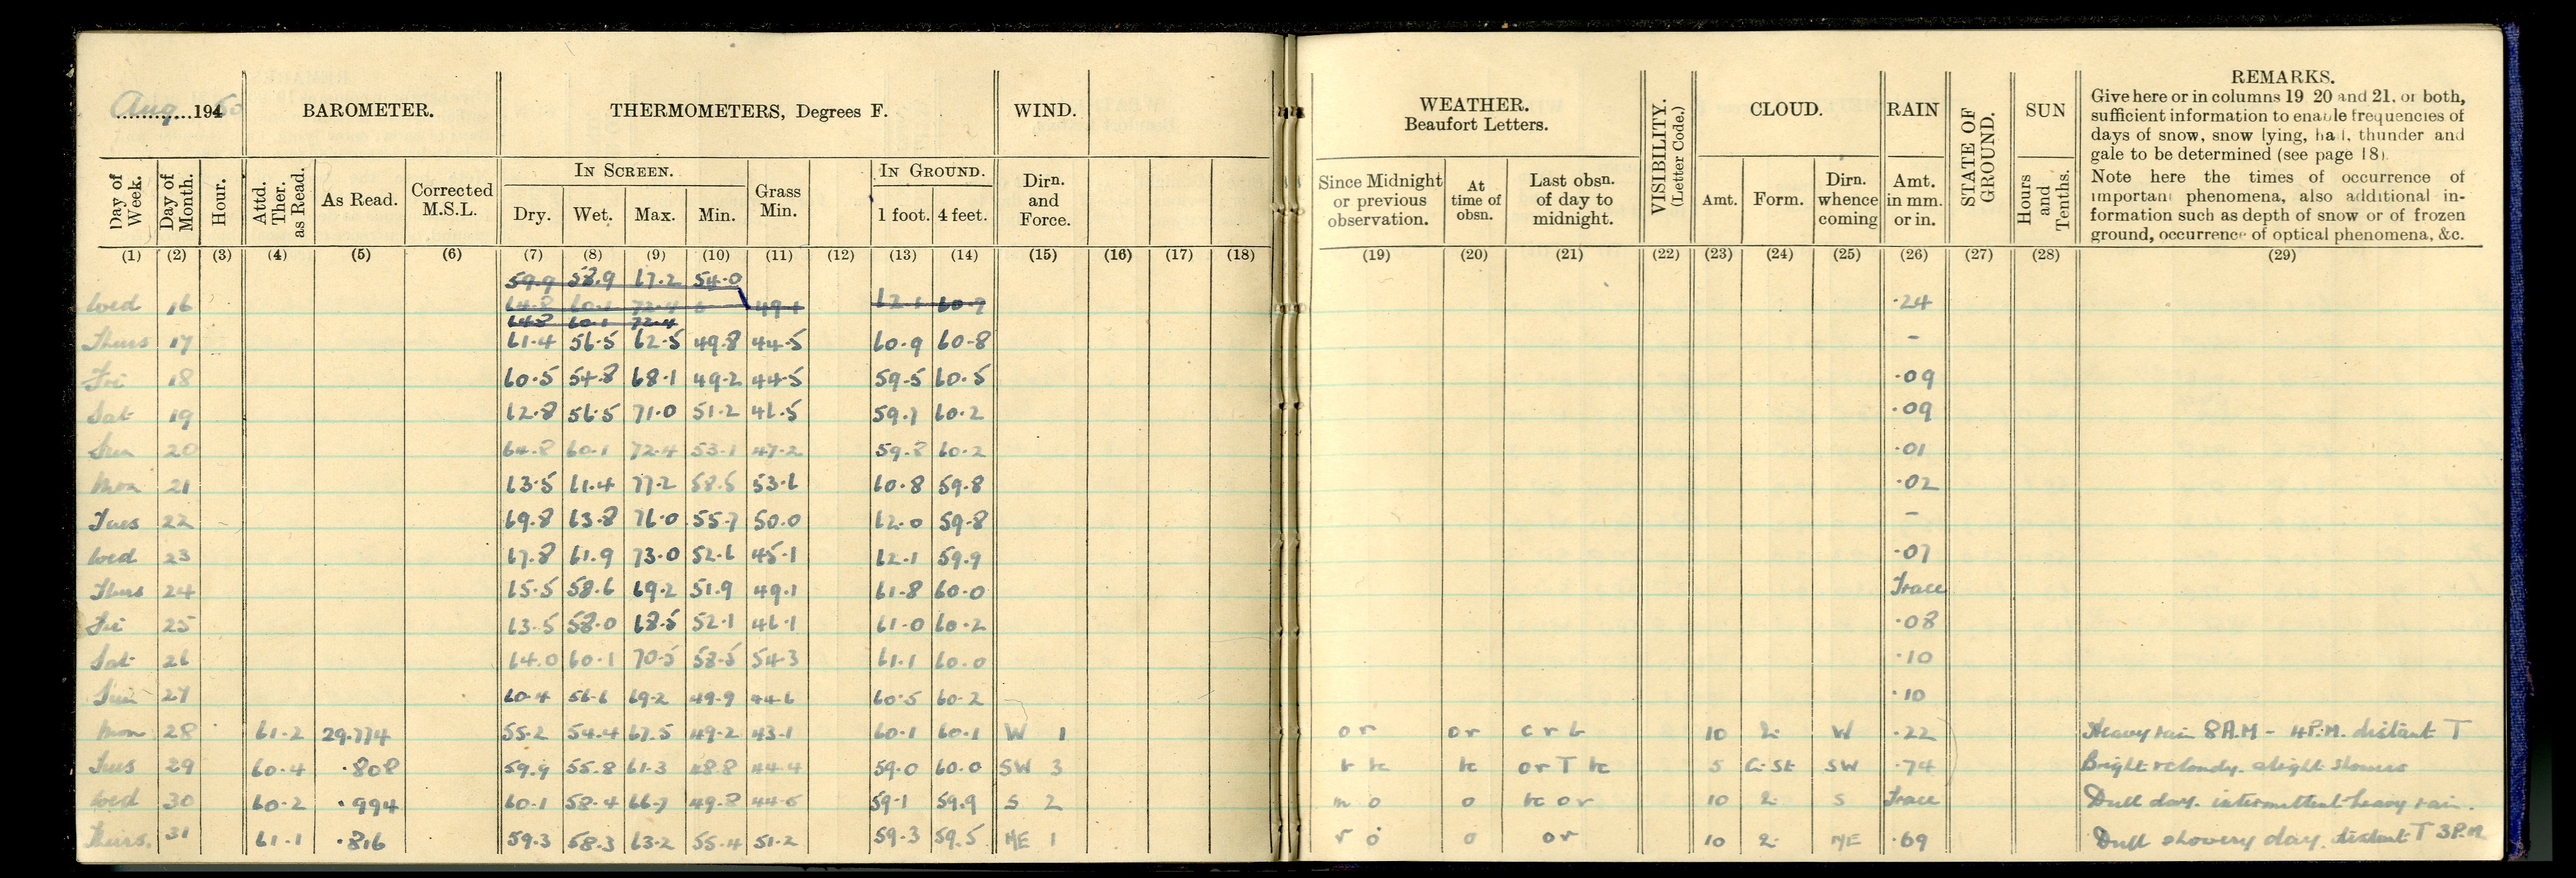 Aug. 1950
BAROMETER.
THERMOMETERS, Degrees F.
WIND.
WEATHER.
Beaufort Letters.
VISIBILITY.
(Letter Code.)
CLOUD.
RAIN
STATE OF
GROUND.
SUN
REMARKS.
Give here or in columns 19 20 and 21, or both,
sufficient information to enable frequencies of
days of snow, snow lying, hail, thunder and
gale to be determined (see page 18).
Note here the times of occurrence of
important phenomena, also additional in-
formation such as depth of snow or of frozen
ground, occurrence of optical phenomena, &c.
Day of Week.
Day of Month.
Hour.
Attd. Ther. as Read.
As Read.
Corrected M.S.L.
IN SCREEN.
Dry. Wet. Max. Min.
Grass Min.
IN GROUND.
1 foot. 4 feet.
Dirn. and Force.
Since Midnight or previous observation.
At time of obsn.
Last obsn. of day to midnight.
Amt. Form. Dirn. whence coming
Amt. in mm. or in.
Hours and Tenths.
(1) (2) (3) (4) (5) (6) (7) (8) (9) (10) (11) (12) (13) (14) (15) (16) (17) (18) (19) (20) (21) (22) (23) (24) (25) (26) (27) (28) (29)
59.9 58.9 67.2 54.0
Wed 16 64.8 60.1 72.4 49.1 62.1 60.9 .24
64.8 60.1 72.4
Thurs 17 61.4 56.5 62.5 49.8 44.5 60.9 60.8 -
Fri 18 60.5 54.8 68.1 49.2 44.5 59.5 60.5 .09
Sat 19 62.8 56.5 71.0 51.2 46.5 59.7 60.2 .09
Sun 20 64.8 60.1 72.4 53.1 47.2 59.8 60.2 .01
Mon 21 63.5 61.4 77.2 58.5 53.6 60.8 59.8 .02
Tues 22 69.8 63.8 76.0 55.7 50.0 62.0 59.8 -
Wed 23 67.8 61.9 73.0 52.6 45.1 62.1 59.9 .07
Thurs 24 65.5 58.6 69.2 51.9 49.1 61.8 60.0 Trace
Fri 25 63.5 58.0 68.5 52.1 46.1 61.0 60.2 .08
Sat 26 64.0 60.1 70.5 58.5 54.3 61.1 60.0 .10
Sun 27 60.4 56.6 69.2 49.9 44.6 60.5 60.2 .10
Mon 28 61.2 29.774 55.2 54.4 67.5 49.2 43.1 60.1 60.1 W 1 or or c r b 10 W .22 Heavy rain 8A.M - 4P.M. distant T
Tues 29 60.4 .808 59.9 55.8 61.3 48.8 44.4 59.0 60.0 SW 3 bc or T bc 5 SW .74 Bright & cloudy. slight showers
Wed 30 60.2 .994 60.1 58.4 66.7 49.8 44.6 59.1 59.9 S 2 m o o bc or 10 S Trace Dull day. intermittent heavy rain.
Thurs. 31 61.1 .816 59.3 58.3 63.2 55.4 51.2 59.3 59.5 NE 1 r o o or 10 NE .69 Dull showery day. distant T 3P.M.